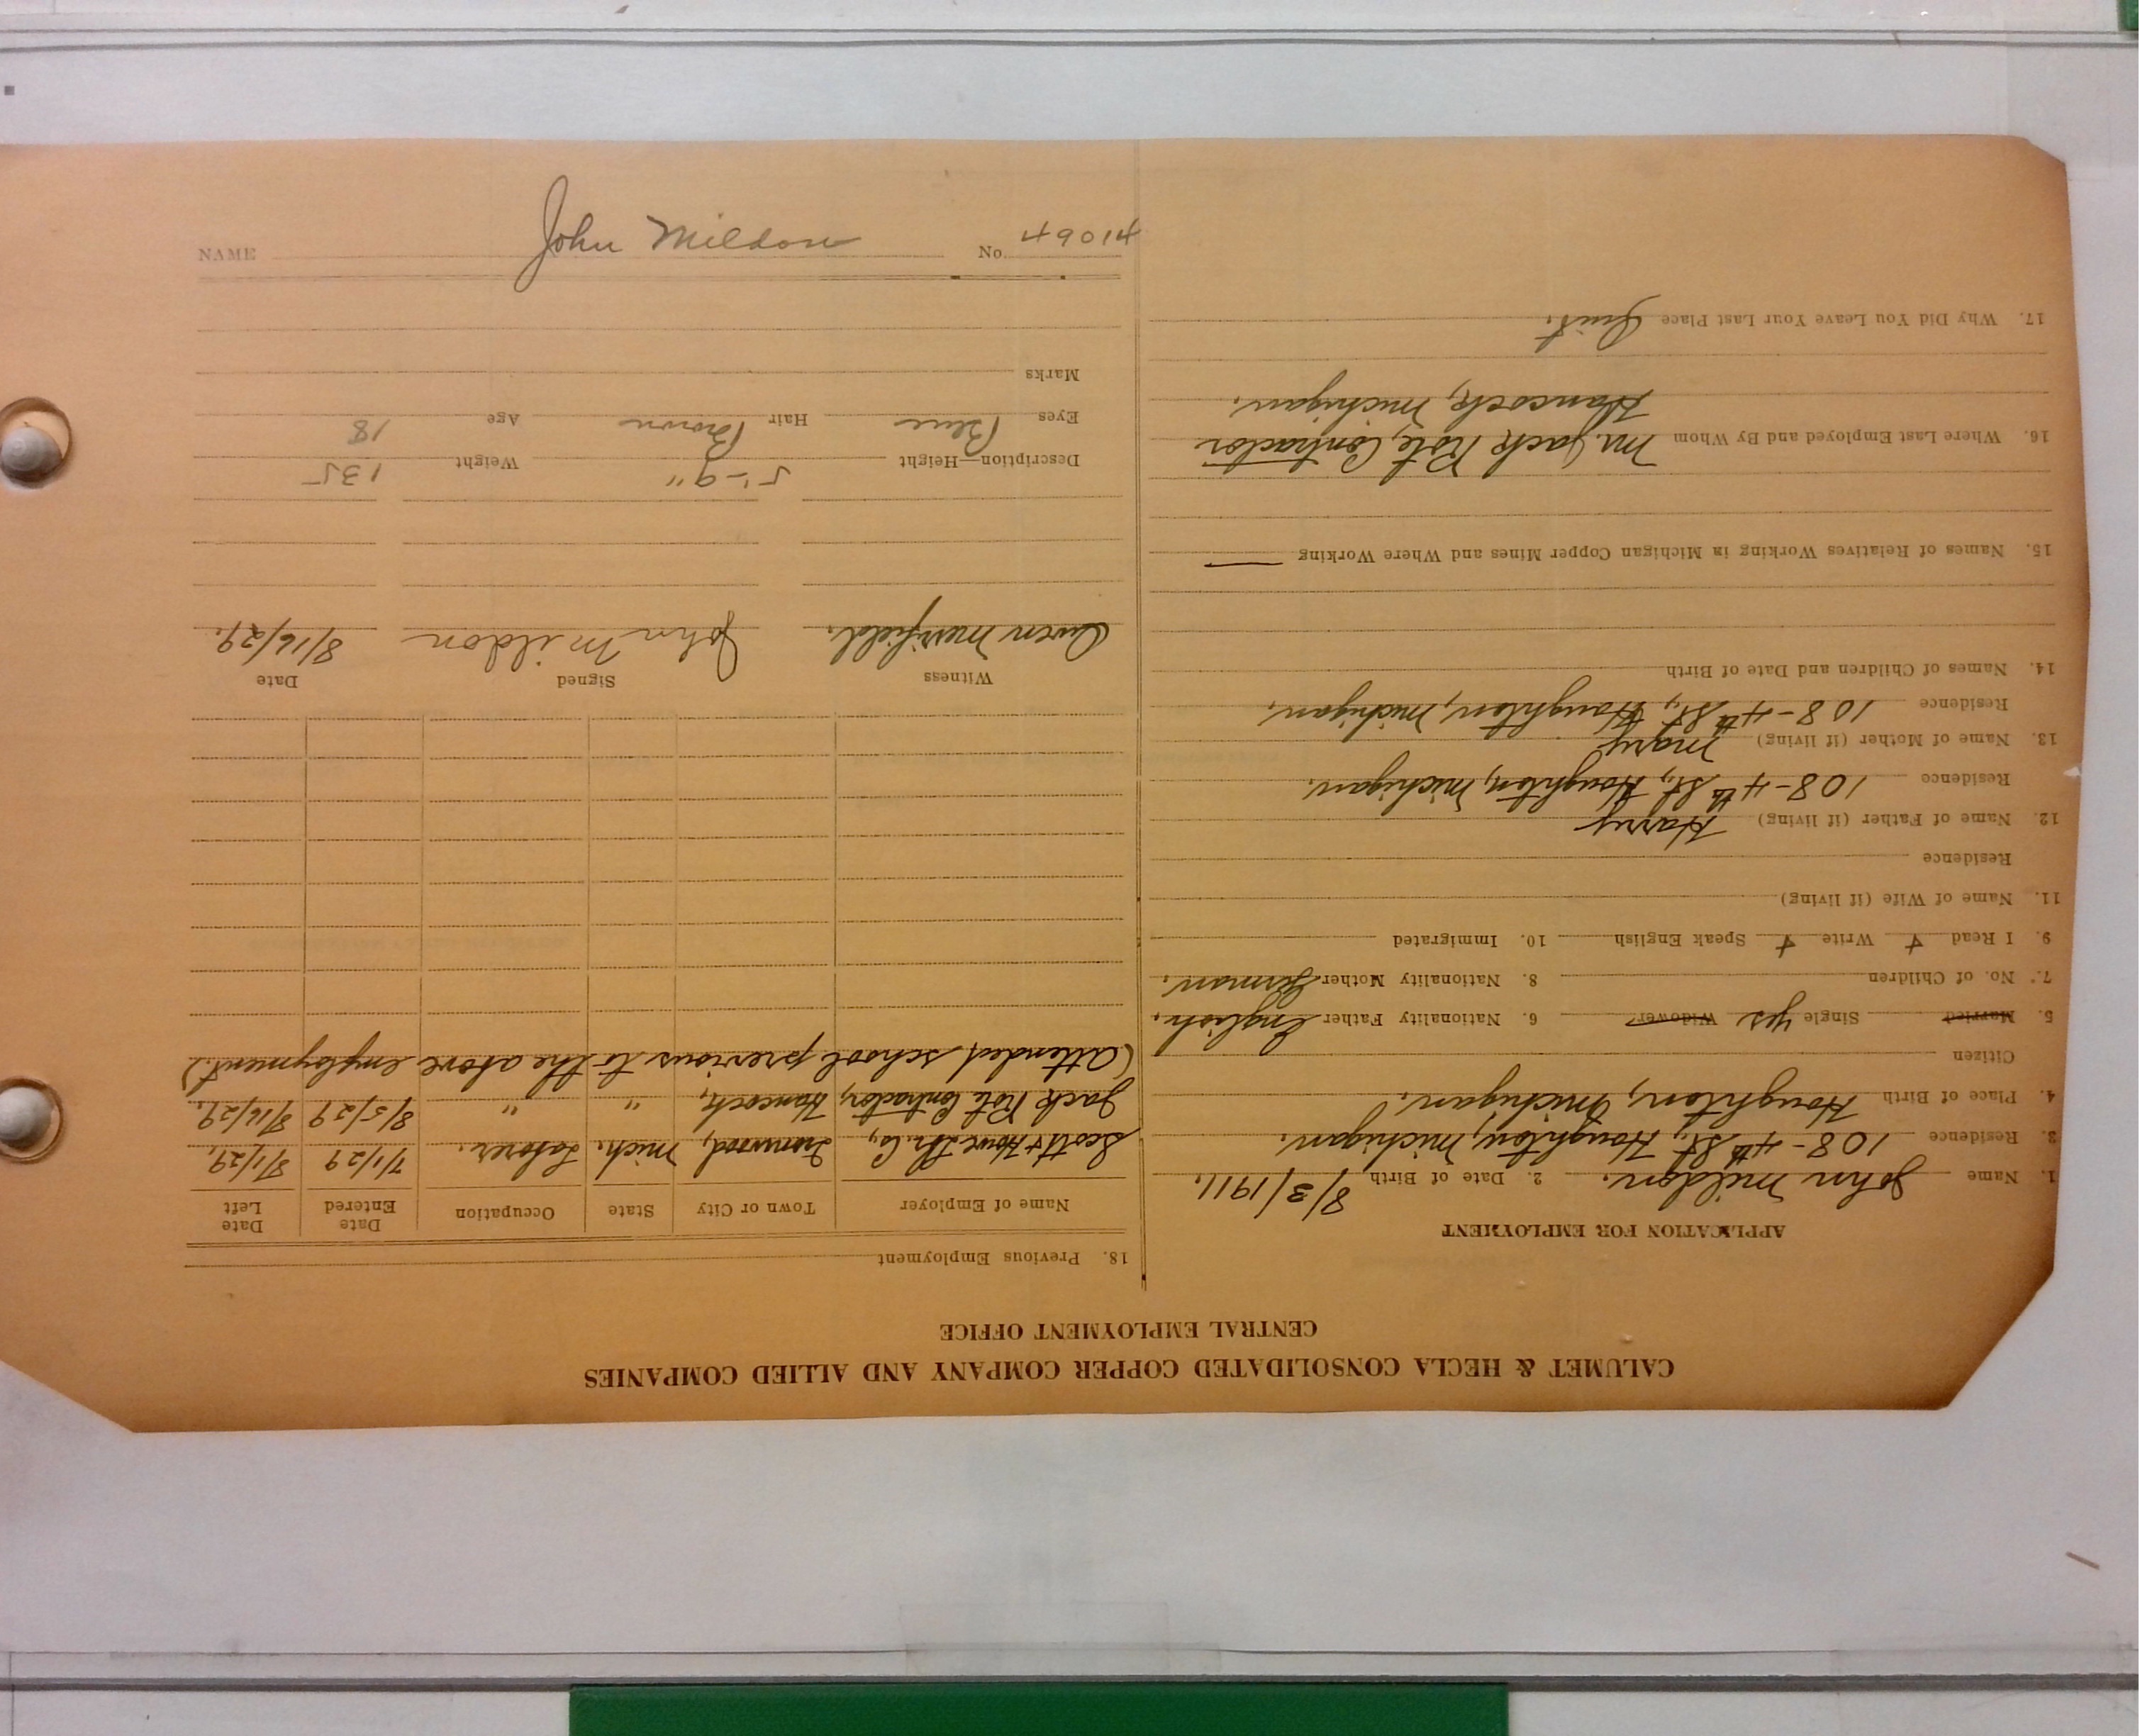 CALUMET & HECLA CONSOLIDATED COPPER COMPANY AND ALLIED COMPANIES
CENTRAL EMPLOYMENT OFFICE
APPLICATION FOR EMPLOYMENT
1. Name John Mildon. 2. Date of Birth 8/3/1911.
3. Residence 108-4th St., Houghton, Michigan.
4. Place of Birth Houghton, Michigan.
Citizen
5. Married Single yes Widower 6. Nationality Father English.
7. No. of Children 8. Nationality Mother German.
9. I Read + Write + Speak English 10. Immigrated
11. Name of Wife (if living)
Residence
12. Name of Father (if living) Harry
Residence 108-4th St., Houghton, Michigan.
13. Name of Mother (if living) Mary
Residence 108-4th St., Houghton, Michigan.
14. Names of Children and Date of Birth
15. Names of Relatives Working in Michigan Copper Mines and Where Working —
16. Where Last Employed and By Whom Mr. Jack Rote, Contractor
Hancock, Michigan.
17. Why Did You Leave Your Last Place Quit.
18. Previous Employment
Name of Employer Town or City State Occupation Date Entered Date Left
Scott & Howe Lbr. Co., Ironwood, Mich. Laborer. 7/1/29 8/1/29.
Jack Rote Contractor, Hancock, " " 8/5/29 8/16/29.
(Attended school previous to the above employment.)
Witness Signed Date
Owen Merrifield. John Mildon 8/16/29.
Description—Height 5'-9" Weight 135
Eyes Blue Hair Brown Age 18
Marks
NAME John Mildon No. 49014